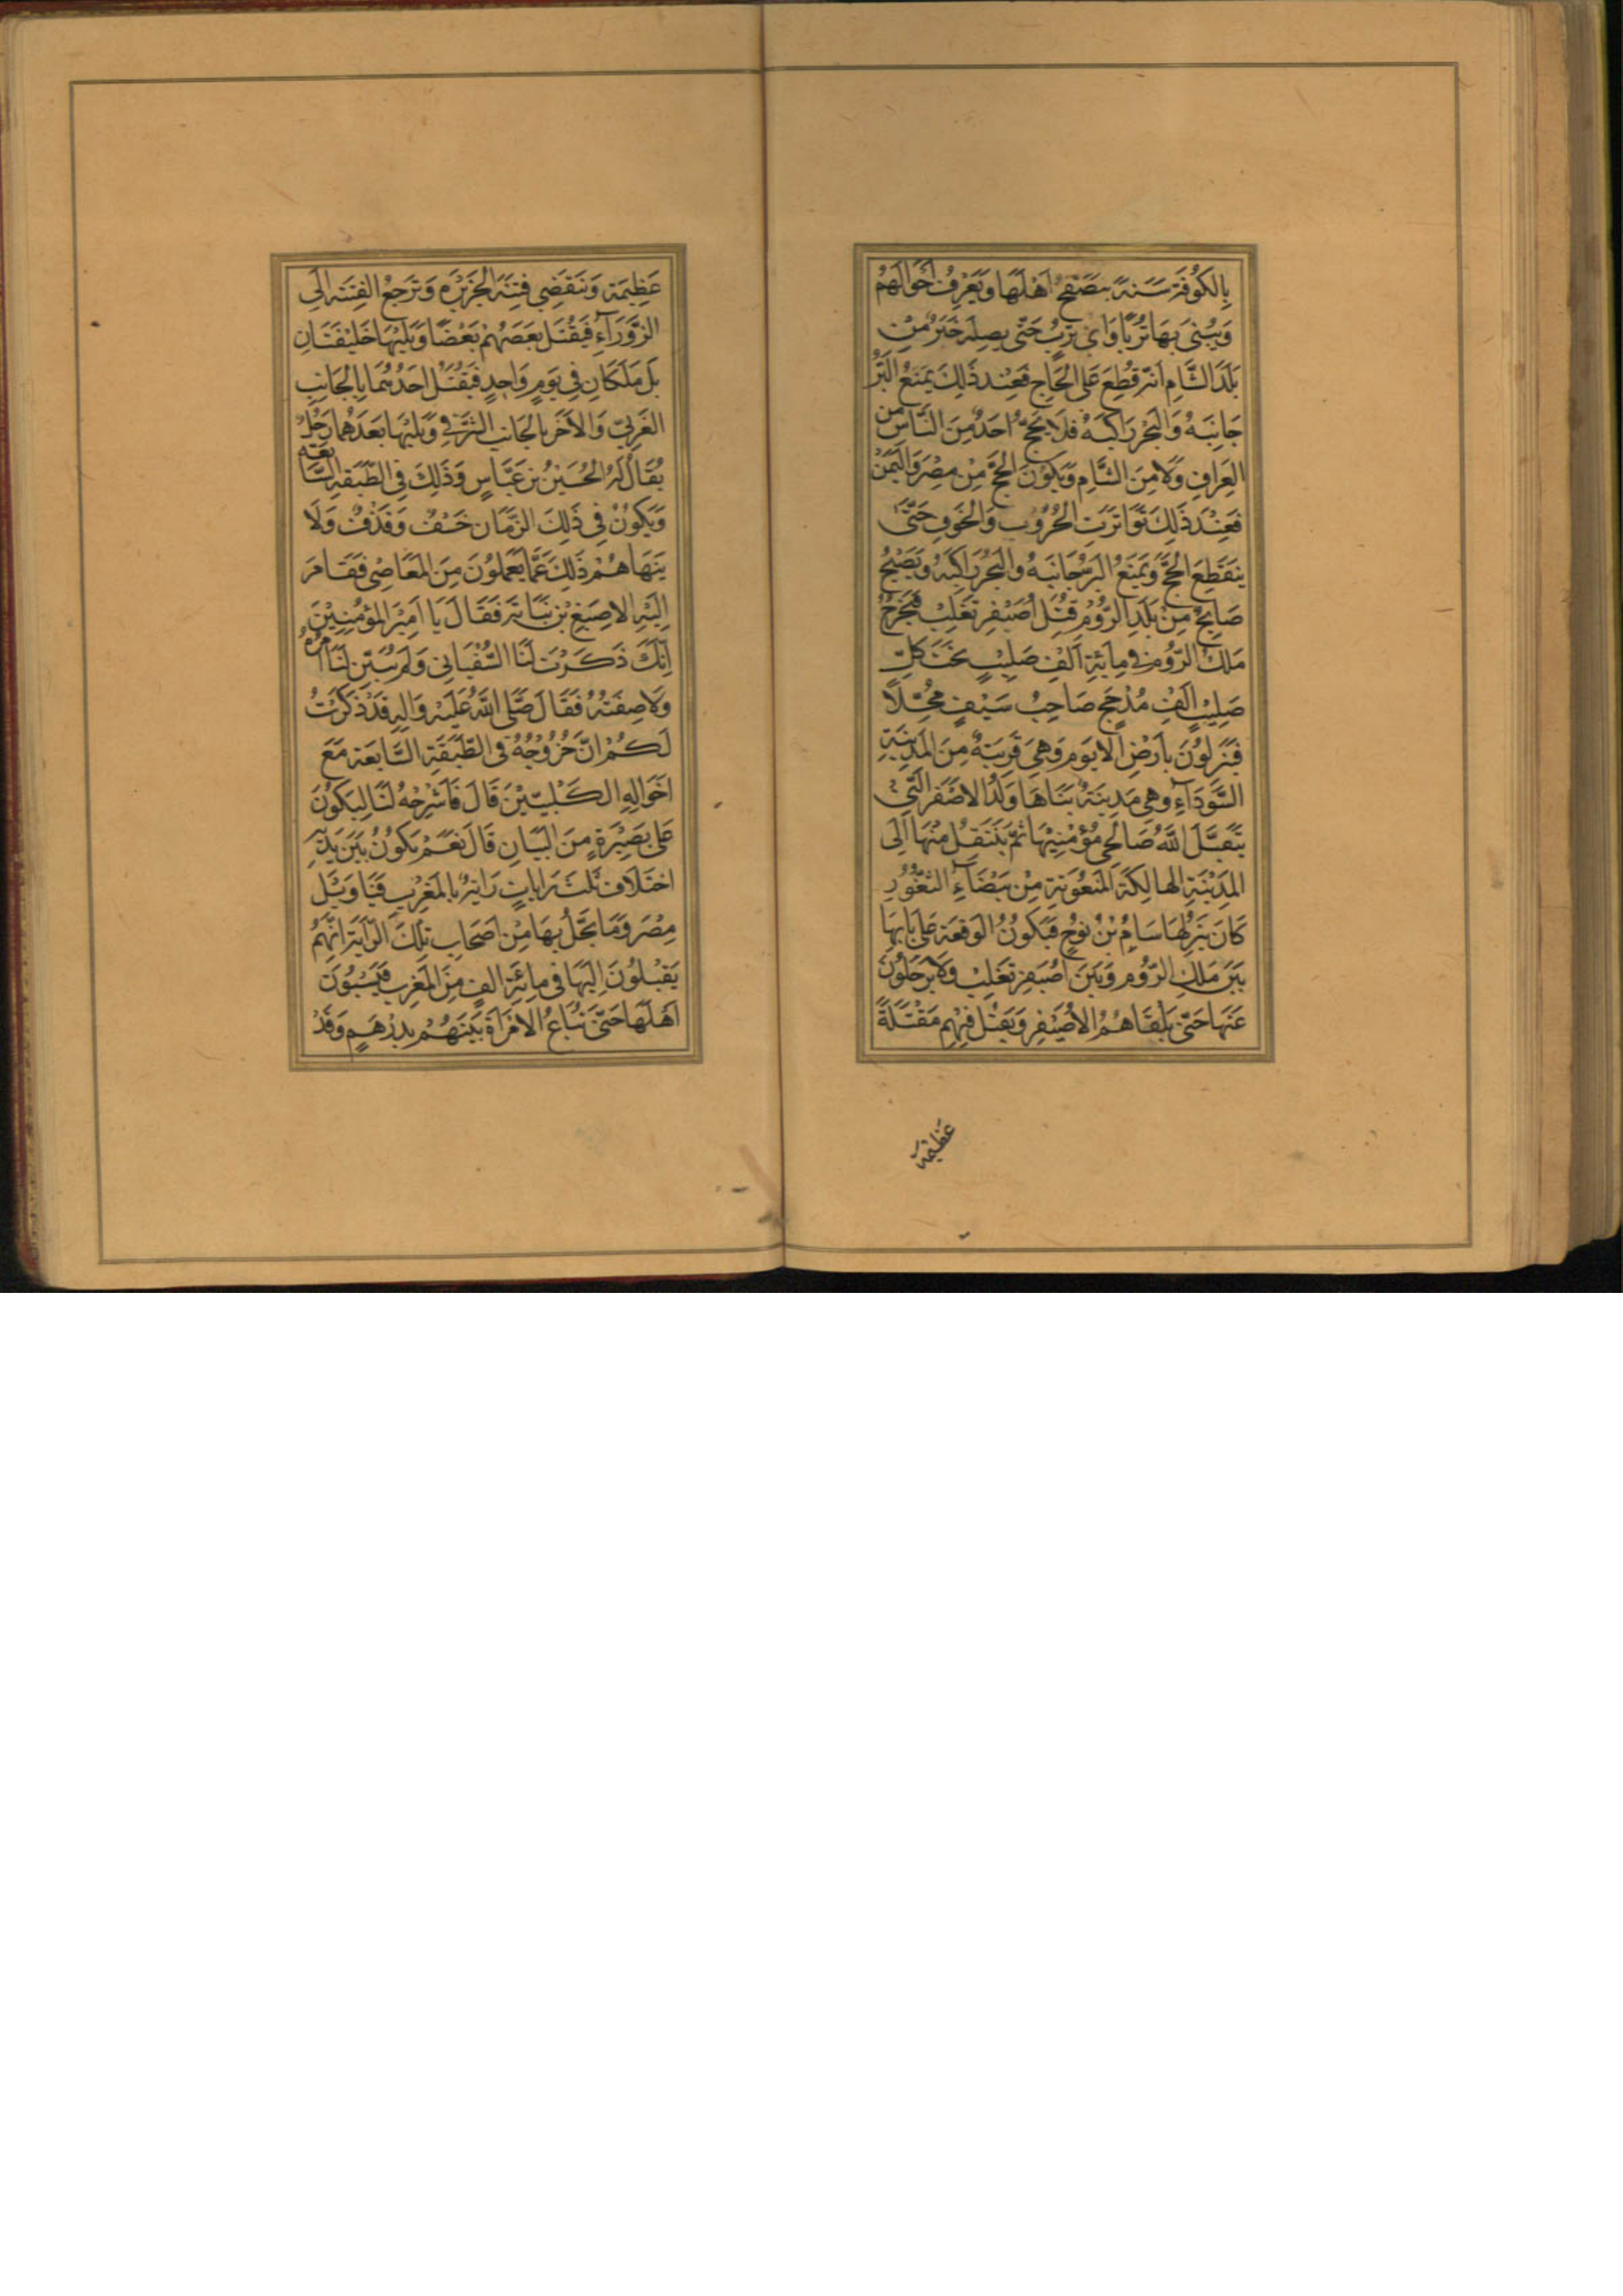 بِالكُوفَةِ سَنَةً يَتَصَفَّحُ اَهْلَهَا وَيَعْرِفُ اَحْوَالَهُمْ
وَيُبْنىٰ بِهَا تُرَبًا وَاىّ تُرَبٍ حَتّىٰ يَصِلَهُ خَبَرٌ مِنْ
بَلَدِ الشَّامِ اَنَّهُ قُطِعَ عَلَى الحَاجِ فَعِنْدَ ذَلِكَ يَمْنَعُ البَرُّ
جَانِبَهُ وَالبَحْرُ رَاكِبَهُ فَلَا يَحُجُّ اَحَدٌ مِنَ النَّاسِ مِنَ
العِرَاقِ وَلَا مِنَ الشَّامِ وَيَكُونُ الحَجُّ مِنْ مِصْرَ وَاليَمَنْ
فَعِنْدَ ذَلِكَ تَوَاتَرَتِ الحُرُوْبُ وَالخَوفُ حَتّىٰ
يَنْقَطِعَ الحَجُّ وَيَمْنَعُ البَرُّ جَانِبَهُ وَالبَحْرُ رَاكِبَهُ وَيَصْيحُ
صَايحٌ مِنْ بَلَدِ الرُّوْمِ قُتِلَ اُصَيْفِرُ تَغْلِبْ فَيَخْرُجُ
مَلِكُ الرُّوْمِ فى مِائَةِ اَلْفِ صَلِيْبٍ تَحْتَ كُلِّ
صَلِيْبٍ اَلْفُ مُدَجِّجٍ صَاحِبُ سَيْفٍ مُحَّلًا
فَيَنْزِلُوْنَ بِاَرْضِ الايوم وَهِىَ قَرِيبَةٌ مِنَ المَدِيْنَةِ
السَّوْدَاءِ وَهِىَ مَدِيْنَةٌ بَنَاهَا وَلَدُ الاصْفَرِ الَّتِى
يَتَقَبَّلُ اللّٰهُ صَالِحى مُؤْمِنِيْهَا ثُمَّ يَنْتَقِلُ مِنْهَا اِلَى
المَدِيْنَةِ الهَالِكَةِ المَنْعُوتَةِ مِنْ بَيْضَاءِ الثُّغُوْرِ
كَانَ يَنْزِلُهَا سَامُ بْنُ نُوْحٍ فَيَكُوْنُ الوَقْعَةُ عَلَى بَابِهَا
بَيْنَ مَلِكِ الرُّوْمِ وَبَيْنَ اُصَيْفِرِ تَغْلِبْ وَلَا يَرْحَلُوْنَ
عَنْهَا حَتّىٰ يَلْقَاهُمُ الاُصَيْفِر وَيَقْتُلُ فِيْهِمْ مَقْتَلَةً
عَظِيْمَة
عَظِيْمَة وَتَنْقَضِى فِتْنَةُ الجَزِيْرَه وَتَرْجِعُ الفِتْنَةُ اِلَى
الزَّوْرَآءِ فَيَقْتُلُ بَعْضَهُمْ بَعْضًا وَيَلِيْهَا خَلِيْفَتَانِ
بَلْ مَلَكَانِ فِى يَوْمٍ وَاحِدٍ فَيُقْتَلُ اَحَدُهُمَا بِالجَانِبِ
الغَرْبِيّ وَالاَخَرُ بِالجَانِبِ الشَّرْقى وَيَلِيْهَا بَعْدَهُمَا رَجُلٌ
يُقَالُ لَهُ الحُسَيْنُ بْنُ عَبَّاسٍ وَذَلِكَ فِى الطَّبَقَةِ السَّابعَة
وَيَكُوْنُ فِى ذَلِكَ الزَّمَانِ خَسْفٌ وَقَذْفٌ وَلَا
يَنْهَاهُمْ ذَلِكَ عَمَّا يَعْمَلُوْنَ مِنَ المَعَاصِى فَقَامَ
اِلَيْهِ الاصْبَغُ بْنُ نَبَاتَةَ فَقَالَ يَا اَمِيْرَ المُؤمِنِيْنَ
اِنَّكَ ذَكَرْتَ لَنَا السُّفْيَانِى وَلَمْ تُبَيِّنْ لَنَا اَمْرَهُ
وَلَا صِفَتَهُ فَقَالَ صَلَّى اللّٰهُ عَلَيْهِ وَالِهِ قَدْ ذَكَرْتُ
لَكُمْ اَنَّ خُرُوْجَهُ فى الطَّبَقَةِ السَّابِعَةِ مَعَ
اَخْوَالِهِ الكَلْبِيّيْنَ قَالَ فَاشْرَحْهُ لَنَا لِيَكُوْنَ
عَلى بَصِيْرَةٍ مِنَ البَيَانِ قَالَ نَعَمْ يَكُوْنُ بَيْنَ يَدَيْهِ
اخْتِلَاف ثَلَث رَايَاتٍ رَايَةٌ بِالمَغْرِبِ فَيَا وَيْلَ
مِصْرَ وَمَا يَحُلُّ بِهَا مِنْ اَصْحَابِ تِلْكَ الرَّايَةِ اِنَّهُمْ
يَقْبِلُوْنَ اِلَيْهَا فى مِائَةِ الفٍ مِنَ المَغْرِبِ فَيَسْبُوْنَ
اَهْلَهَا حَتّىٰ تُبَاعُ الامْرَاَةُ بَيْنَهُمْ بِدِرْهَمٍ وَقَدْ